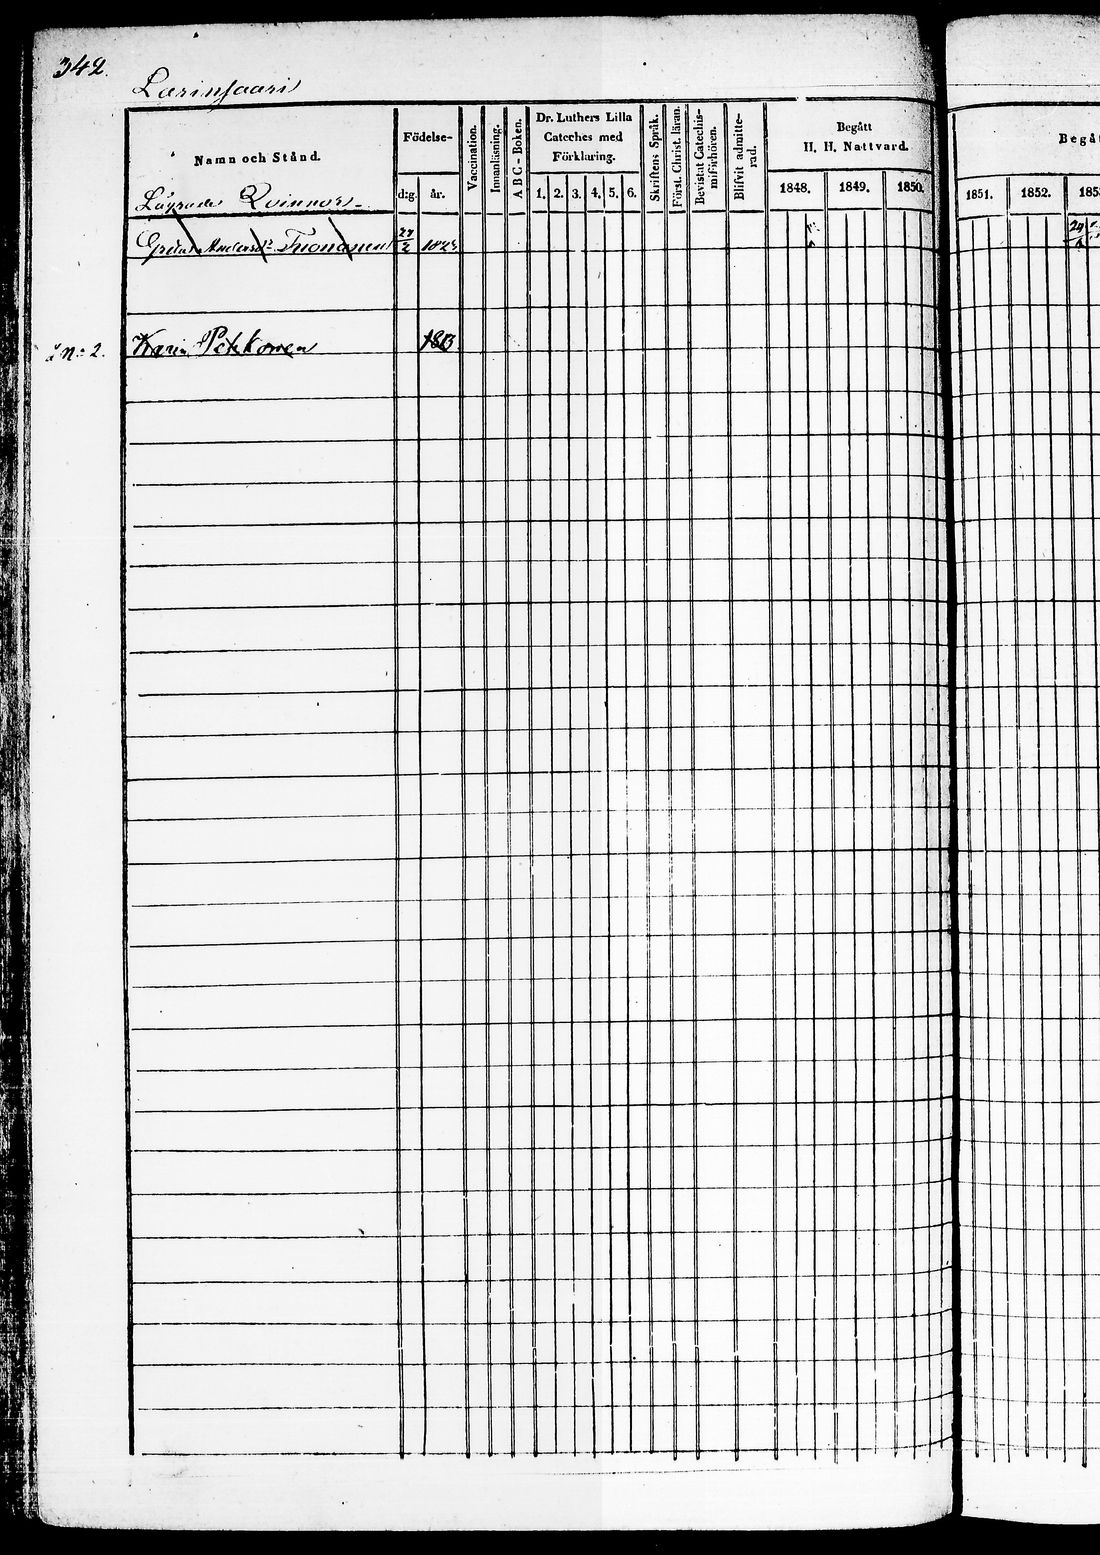 342.
Larinsaari
Namn och Stånd.
Födelse-
d:g. år.
Vaccination.
Innanläsning.
ABC-Boken.
Dr. Luthers Lilla
Cateches med
Förklaring.
1. 2. 3. 4. 5. 6.
Skriftens Språk.
Först. Christ. läran.
Bevistat Catechis-
miförhören.
Blifvit admitte-
rad.
Begått
H. H. Nattvard.
1848. 1849. 1850.
Begåt
1851. 1852. 1853
Lägrade Qvinnor
Greta Andersdr Tuononen 27/2 182
Karin Pekkonen 1813
No 2.